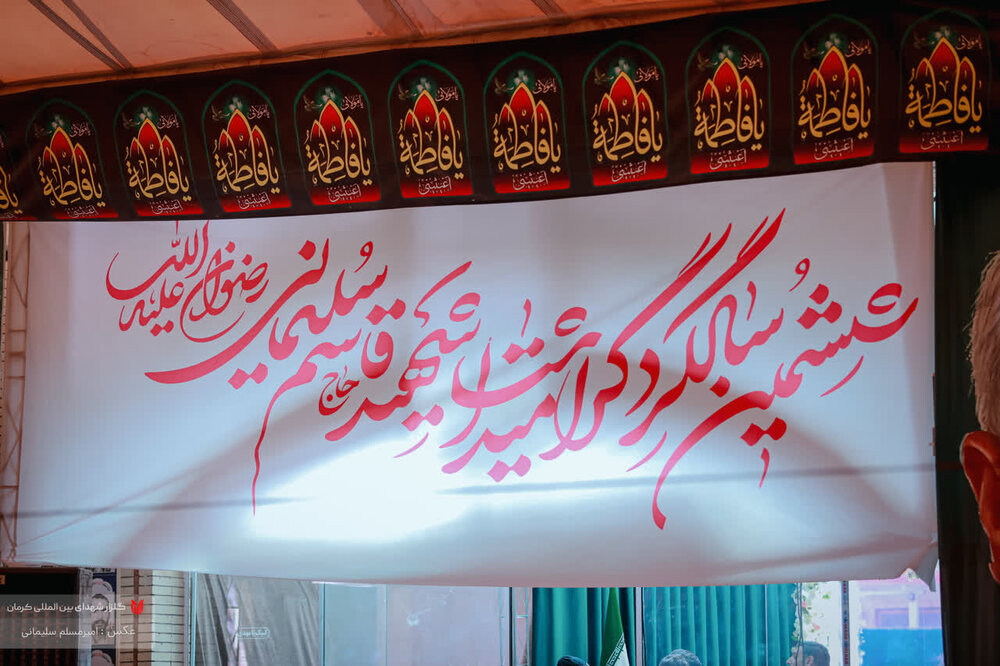 یامولاتی
یا فاطمة
اغیثینی
ششمین سالگرد گرامیداشت شهید حاج قاسم سلیمانی رضوان الله علیه
گلزار شهدای بین المللی کرمان
عکس : امیرمسلم سلیمانی